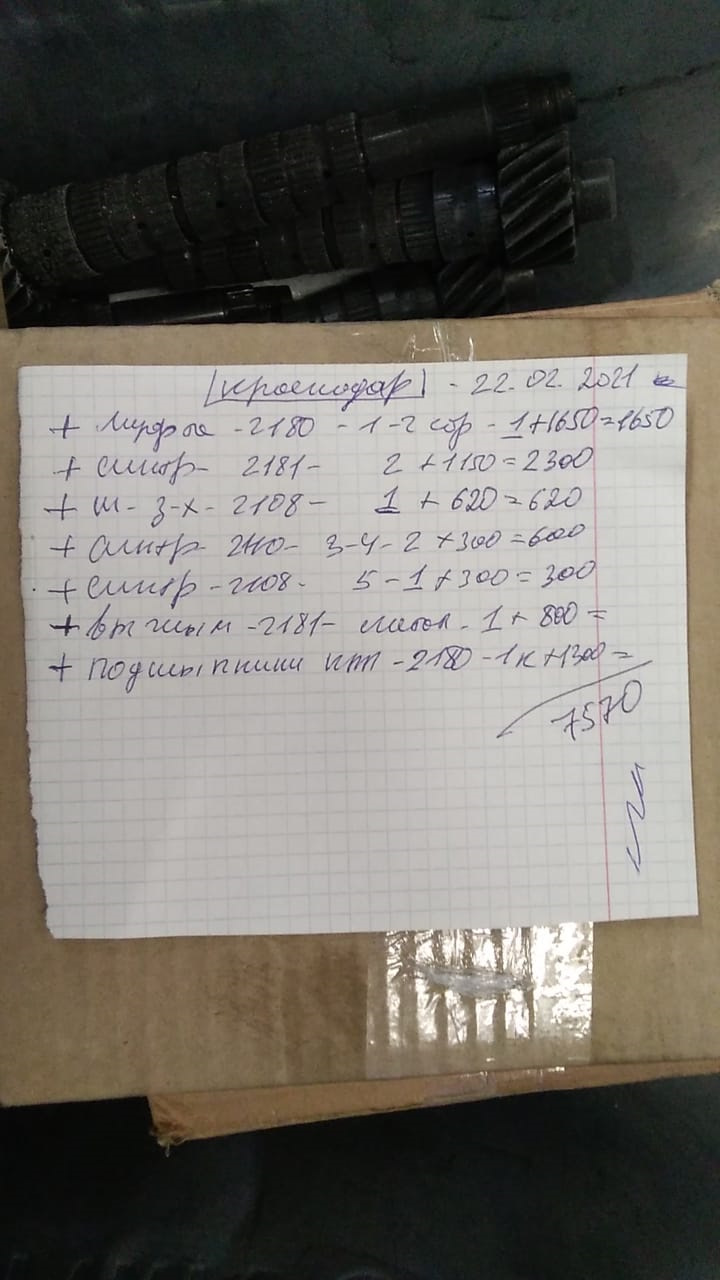 Краснодар - 22.02.2021
+ Муфта -2180 - 1-2 сбр - 1+1650=1650
+ синхр- 2181- 2+1150=2300
+ ш-з-х-2108- 1 + 620=620
+ синхр- 2110- 3-4-2+300=600
+ синхр-2108- 5-1+300=300
+ -2181- 1+800=
+ Подшыпники кпп -2180-1к+1300=
7570